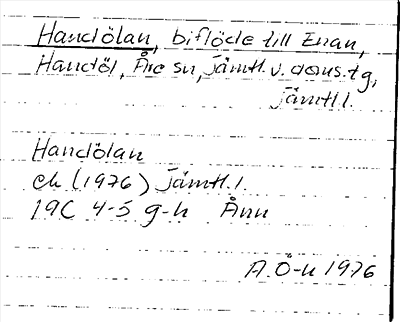 Handölan, biflöde till Enan,
Handöl, Åre sn, Jämtl. v. doms.tg,
Jämtl.l.
Handölan
ek (1976) Jämtl.l.
19C 4-5 g-h Ånn
A.Ö-n 1976